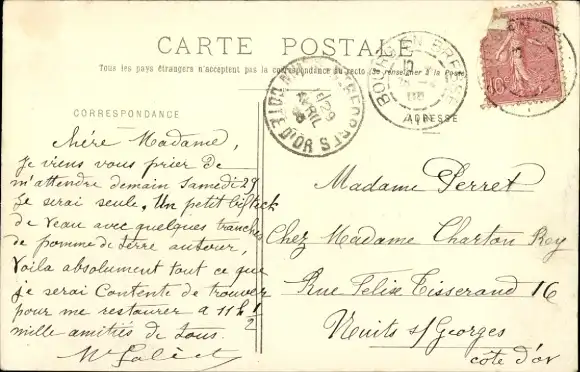 CARTE POSTALE
Tous les pays étrangers n'acceptent pas la correspondance du recto (Se renseigner à la Poste)
CORRESPONDANCE
Chère Madame,
Je viens vous prier de
m'attendre demain Samedi 29
Je serai seule. Un petit bifteck
de veau avec quelques tranches
de pomme de terre autour,
Voila absolument tout ce que
je serai Contente de trouver
pour me restaurer a 11h 1/2
mille amitiés de tous.
ADRESSE
Madame Perret
Chez Madame Charton Rey
Rue Felix Tisserand 16
Nuits s/ Georges
côte d'or
BOURG-EN-BRESSE
CÔTE D'OR
AVRIL
10c